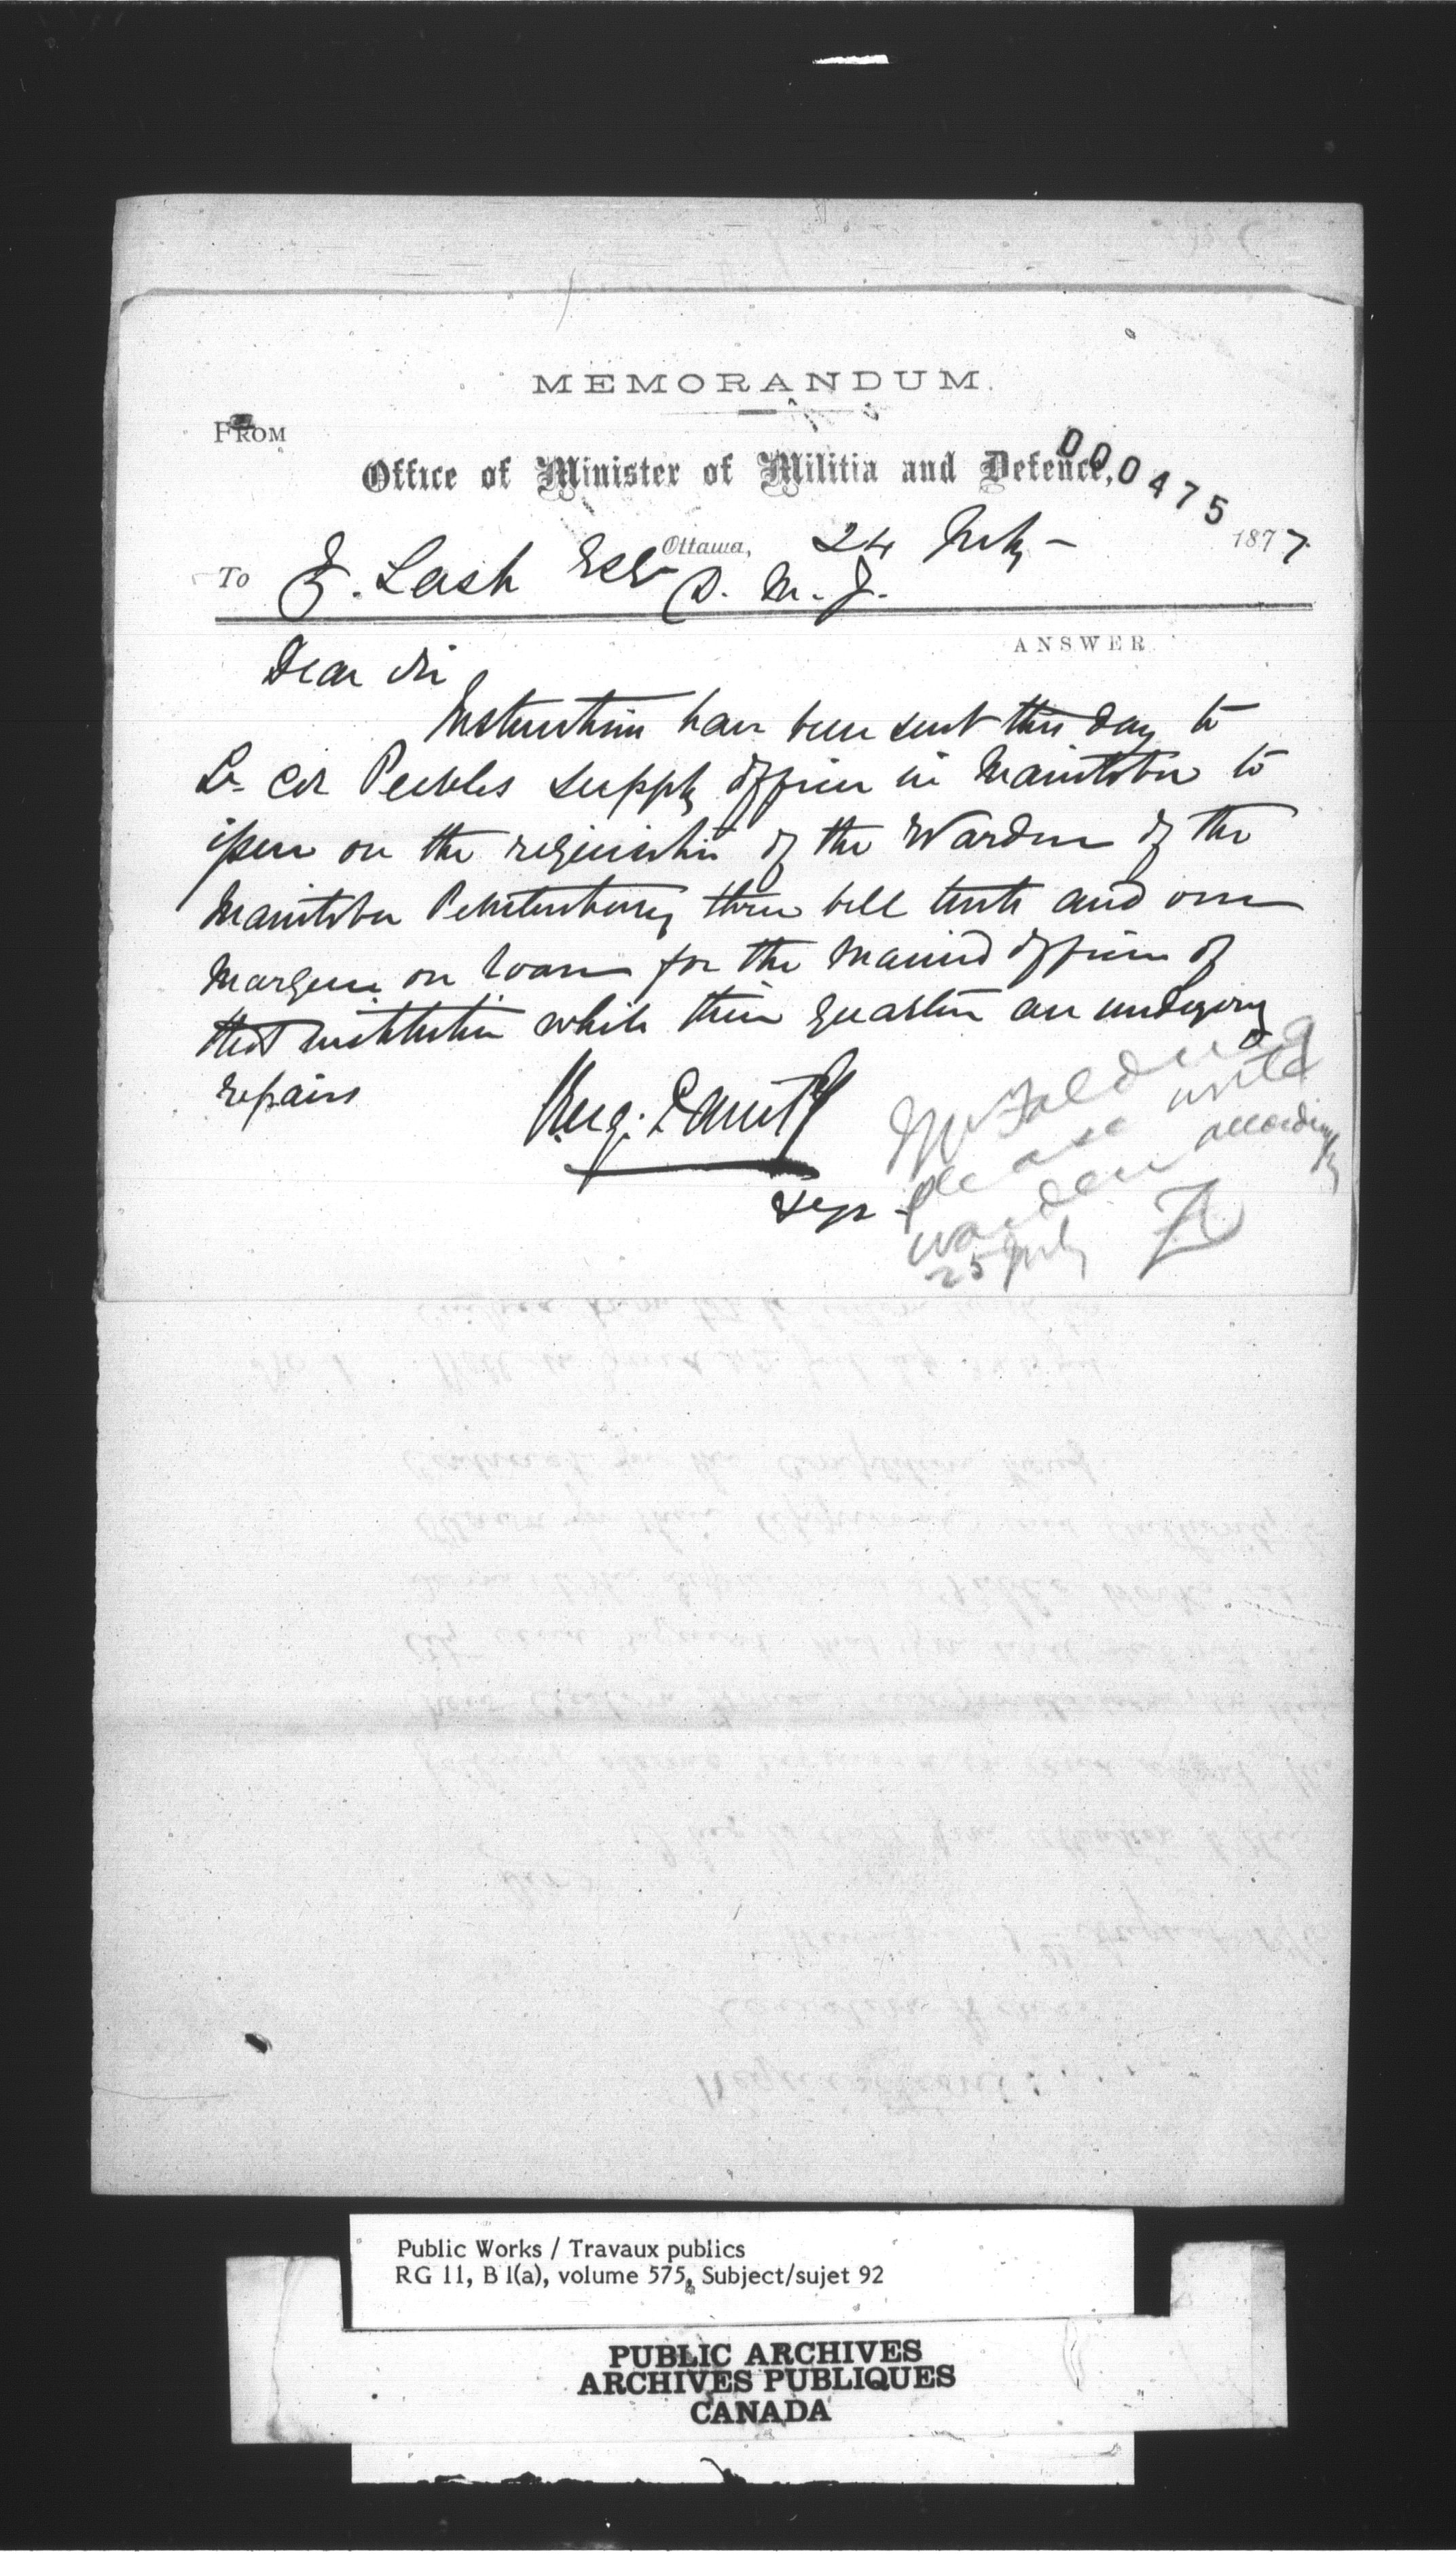 MEMORANDUM.
FROM
Office of Minister of Militia and Defence,
000475
Ottawa, 24 July - 1877.
To Z. Lash Esq D. M. J.
ANSWER
Dear Sir
Instructions have been sent this day to
Lt Col Peebles supply officer in Manitoba to
issue on the requisition of the Warden of the
Manitoba Penitentiary three bell tents and one
Marquee on loan for the married officers of
that institution while their quarters are undergoing
repairs
Benj. Sulte
Mr Falding
please write
warden accordingly
25 July ZL
Public Works / Travaux publics
RG 11, B 1(a), volume 575, Subject/sujet 92
PUBLIC ARCHIVES
ARCHIVES PUBLIQUES
CANADA